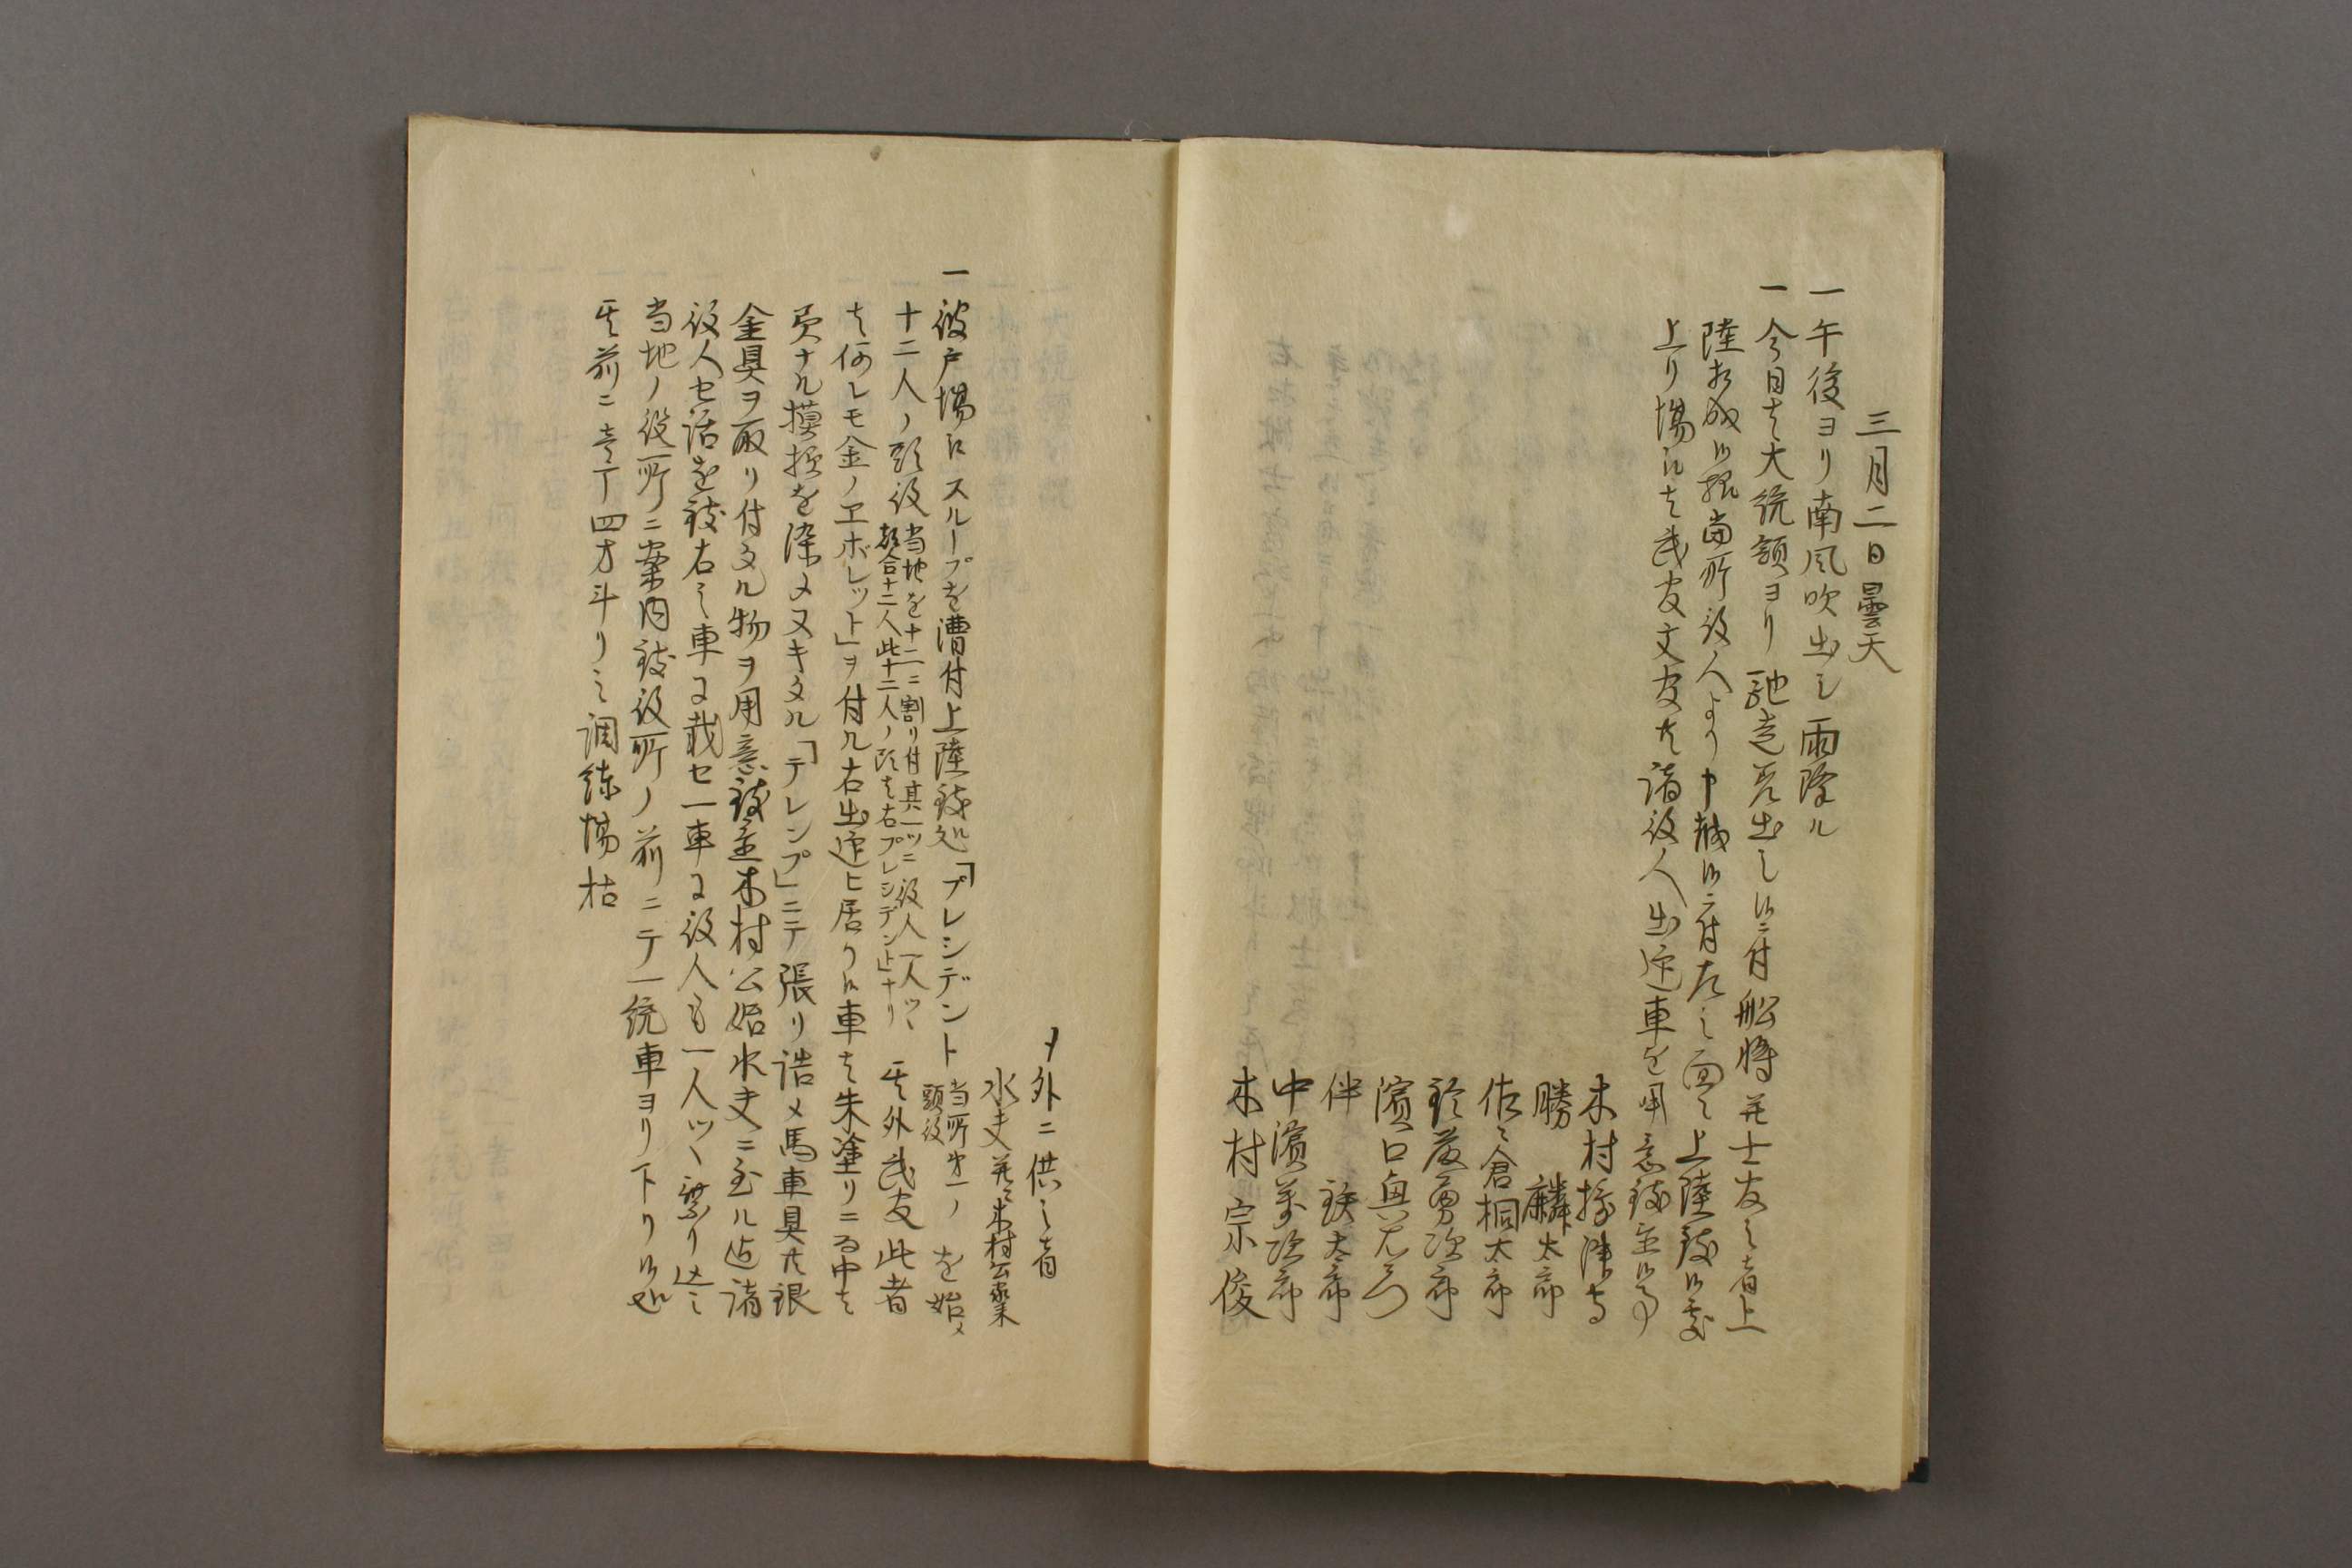 三月二日曇天
一午後ヨリ南風吹出シ雨降ル
一今日者大統領ヨリ馳走差出し候ニ付船将并士官之者上
陸相成候様当所役人より申越候ニ付左之面々上陸致候処
上り場江者武官文官共諸役人出迎車を用意致置候事
木村摂津守
勝麟太郎
佐々倉桐太郎
鈴藤勇次郎
濱口與右衛門
伴鉄太郎
中濱萬次郎
木村宗俊
外ニ供之者
水夫并ニ木村公家来
一波戸場江スループを漕付上陸致候処「プレシデント当所第一ノ頭役を始メ
十二人ノ頭役当地を十二ニ割り付其一ツニ役人一人ツヽ都合十二人此十二人ノ頭者右プレシデント」ナリ其外武官此者
者何レモ金ノエポレット」ヲ付ル右出迎ヒ居り候車者朱塗リニ而中者
美ナル摸様を染メヌキタル「テレンプ」ニテ張リ詰メ馬車具共銀
金具ヲ取リ付タル物ヲ用意致置木村公始水夫ニ至ル迄諸
役人セ話を致右之車に載セ一車に役人も一人ツヽ乗り込ミ
当地ノ役所ニ案内致役所ノ前ニテ一統車ヨリ下リ候処
其前ニ壱丁四方斗リ之調練場